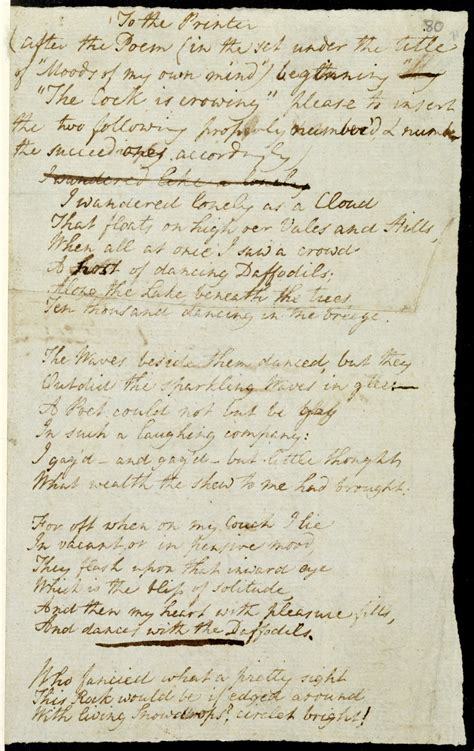 80
To the Printer
(after the Poem (in the set under the title
of "Moods of my own mind") beginning
"The Cock is crowing" please to insert
the two following properly number'd & numbr
the succeeding ones accordingly)
I wandered like a lonely
I wandered lonely as a Cloud
That floats on high o'er Vales and Hills,
When all at once I saw a crowd
A host of dancing Daffodils;
Along the Lake, beneath the trees,
Ten thousand dancing in the breeze.
The Waves beside them danced, but they
Outdid the sparkling Waves in glee:—
A Poet could not but be gay
In such a laughing company:
I gaz'd – and gaz'd – but little thought
What wealth the shew to me had brought.
For oft when on my Couch I lie
In vacant, or in pensive mood,
They flash upon that inward eye
Which is the bliss of solitude,
And then my heart with pleasure fills,
And dances with the Daffodils.
Who fancied what a pretty sight
This Rock would be if edged around
With living Snowdrops? circlet bright!